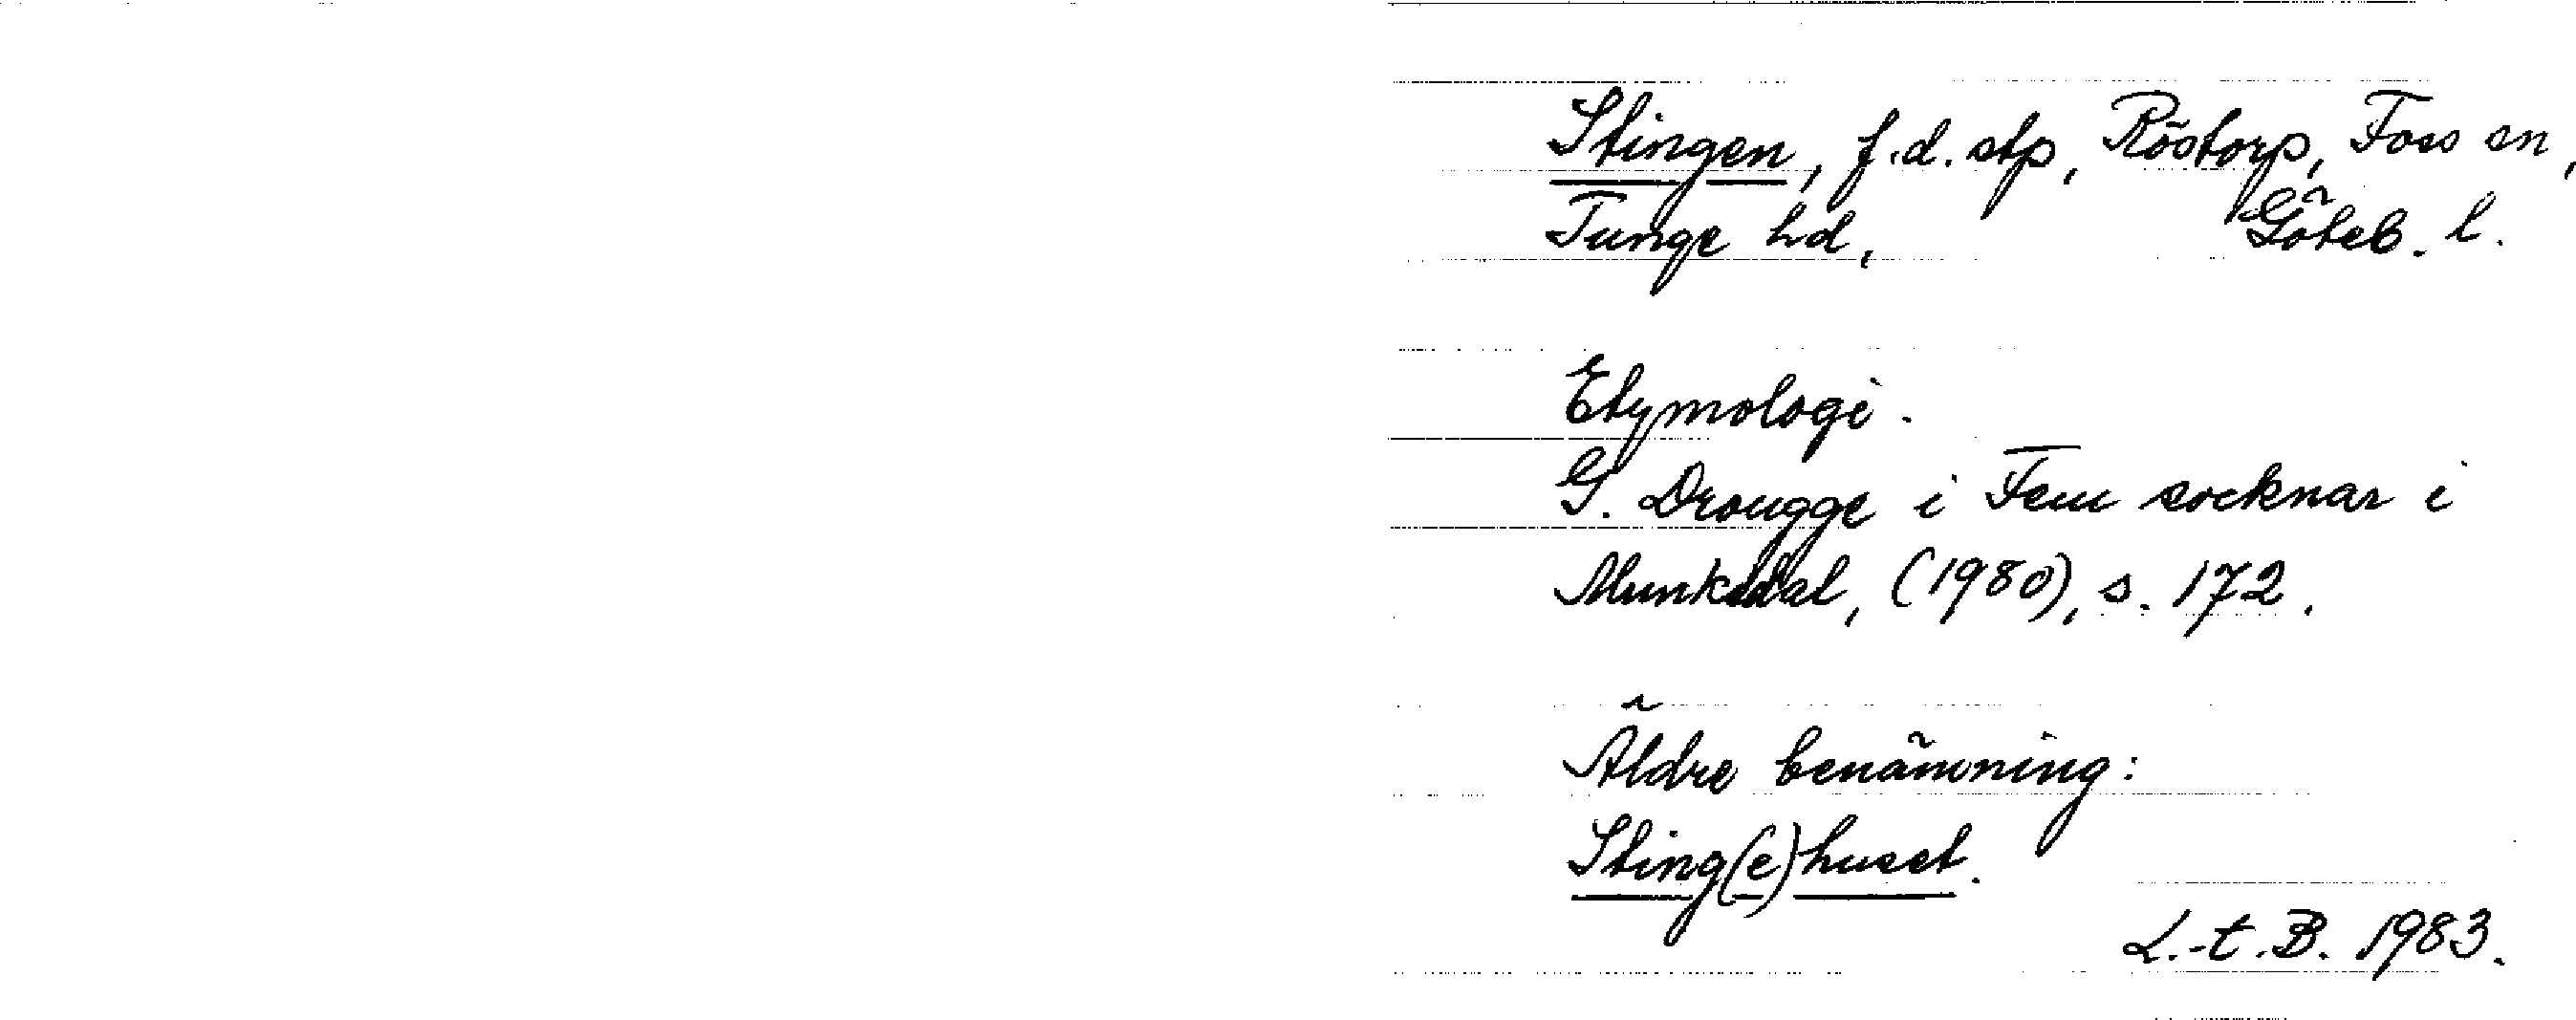 Stingen, f.d. stp, Röstorp, Foss sn,
Tunge hd, Göteb. l.
Etymologi.
G. Drougge i Fem socknar i
Munkedal, (1980), s. 172.
Äldre benämning:
Sting(e)huset.
L.-t. B. 1983.